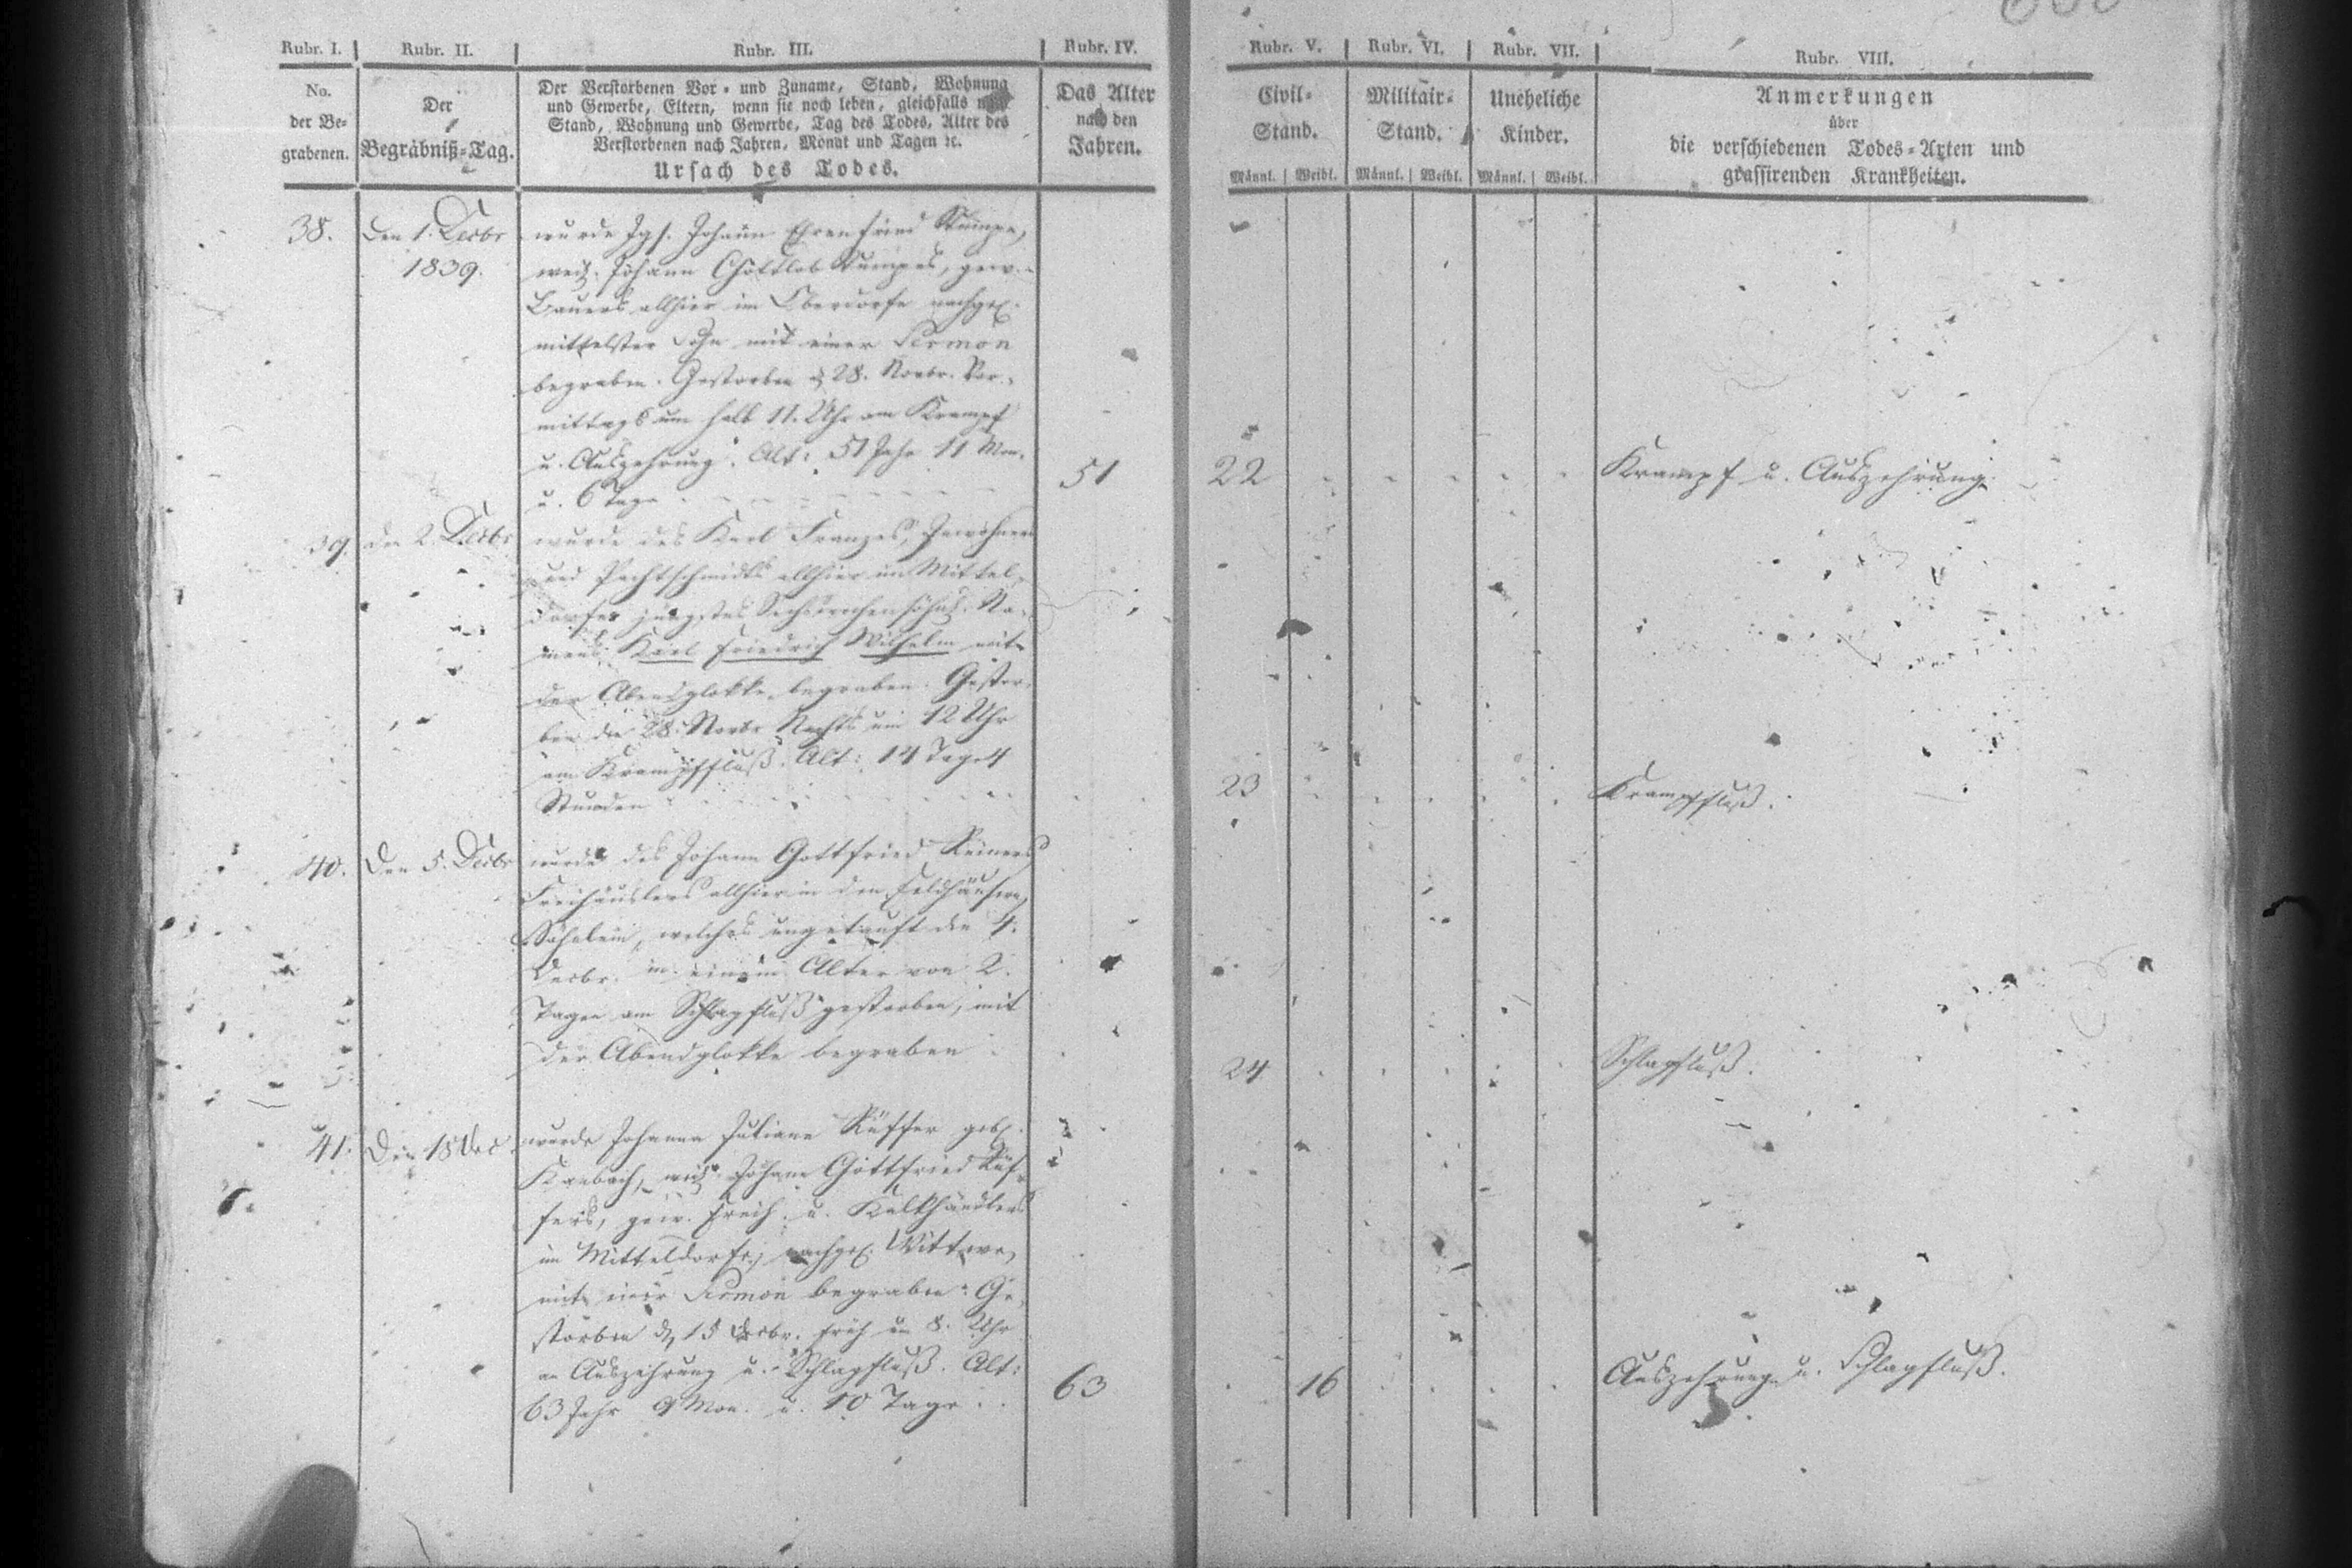 Rubr. I.
Rubr. II.
Rubr. III.
Rubr. IV.
Rubr. V.
Rubr. VI.
Rubr. VII.
Rubr. VIII.
No.
der Be-
grabenen.
Der
Begräbniß-Tag.
Der Verstorbenen Vor- und Zuname, Stand, Wohnung
und Gewerbe, Eltern, wenn sie noch leben, gleichfalls nach
Stand, Wohnung und Gewerbe, Tag des Todes, Alter des
Verstorbenen nach Jahren, Monat und Tagen ꝛc.
Ursach des Todes.
Das Alter
nach den
Jahren.
Civil-
Stand.
Militair-
Stand.
Uneheliche
Kinder.
Anmerkungen
über
die verschiedenen Todes-Arten und
grassirenden Krankheiten.
Männl. Weibl. Männl. Weibl. Männl. Weibl.
38. Den 1. Decbr
1839.
wurde Jgs. Johann Ehrenfried
weil. Johann Gottlob gew.
Bauers allhier im Oberdorfe nachgel.
mittelster Sohn mit einer Sermon
begraben. Gestorben d 28. Novbr. Vor-
mittags um halb 11. Uhr am Krampf
u. Auszehrung. Alt: 51 Jahr 11 Mon.
u. 6 Tage
51
22
Krampf u. Auszehrung.
39. den 2. Decbr
wurde des Karl Franzes, Inwohners
und Pachtschmidts allhier im Mittel-
dorfe jüngstes Sechswochensöhnl. Na-
mens: Karl Friedrich Wilhelm mit
der Abendglokke begraben. Gestor-
ben den 28. Novbr Nachts um 12 Uhr
am Krampffluß. Alt: 14 Tage 4
Stunden
23
Krampffluß.
40. Den 5. Decbr
wurde des Johann Gottfried
Freihäuslers allhier in den Feldhäusern
Söhnlein, welches ungetauft den 4.
Decbr. in einem Alter von 2.
Tagen am Schlagfluß gestorben, mit
der Abendglokke begraben.
24
Schlagfluß.
41. Den 18 Dec.
wurde Johanna Juliane Küffer geb.
weil. Johann Gottfried Küf-
fers, gew. Freih. u. Kalkhändlers
im Mitteldorfe, nachgel. Wittwe,
mit einer Sermon begraben. Ge-
storben d 15 Decbr. früh um 8. Uhr
an Auszehrung u. Schlagfluß. Alt:
63 Jahr 9 Mon. u. 10 Tage.
63
16
Auszehrung u. Schlagfluß.